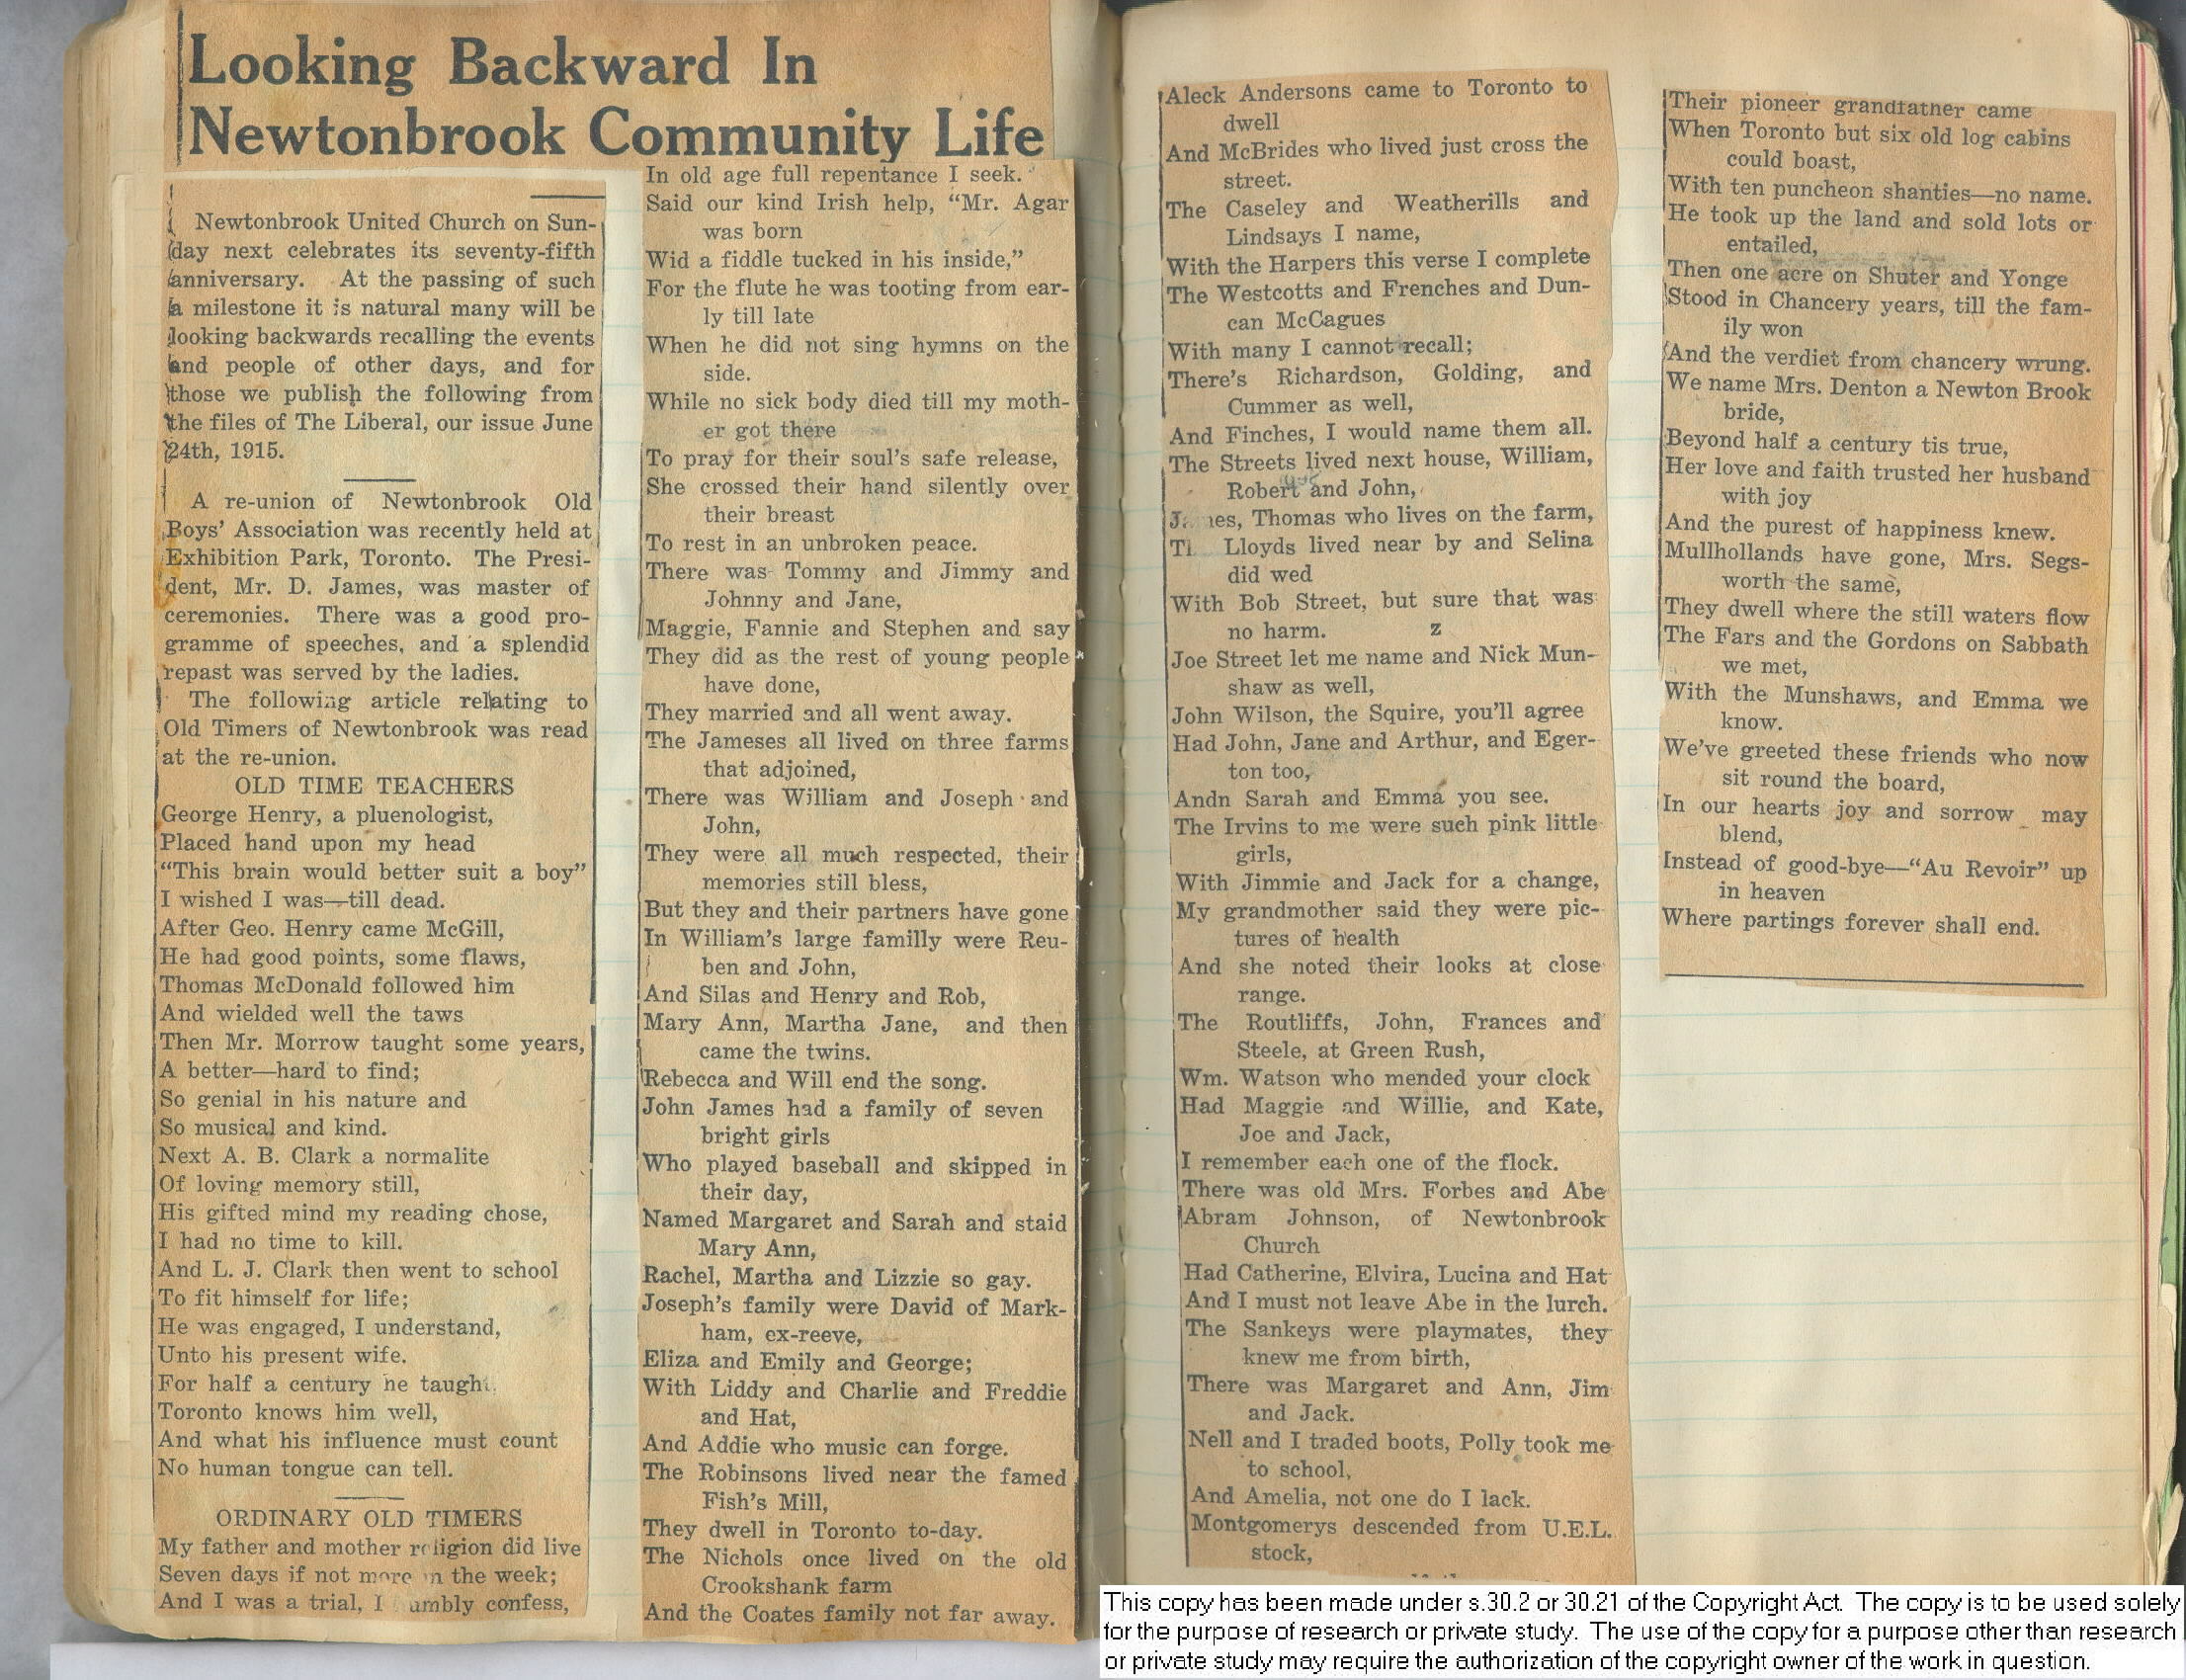 Looking Backward In
Newtonbrook Community Life
Newtonbrook United Church on Sun-
day next celebrates its seventy-fifth
anniversary. At the passing of such
a milestone it is natural many will be
looking backwards recalling the events
and people of other days, and for
those we publish the following from
the files of The Liberal, our issue June
24th, 1915.
A re-union of Newtonbrook Old
Boys' Association was recently held at
Exhibition Park, Toronto. The Presi-
dent, Mr. D. James, was master of
ceremonies. There was a good pro-
gramme of speeches, and a splendid
repast was served by the ladies.
The following article relating to
Old Timers of Newtonbrook was read
at the re-union.
OLD TIME TEACHERS
George Henry, a pluenologist,
Placed hand upon my head
"This brain would better suit a boy"
I wished I was—till dead.
After Geo. Henry came McGill,
He had good points, some flaws,
Thomas McDonald followed him
And wielded well the taws
Then Mr. Morrow taught some years,
A better—hard to find;
So genial in his nature and
So musical and kind.
Next A. B. Clark a normalite
Of loving memory still,
His gifted mind my reading chose,
I had no time to kill.
And L. J. Clark then went to school
To fit himself for life;
He was engaged, I understand,
Unto his present wife.
For half a century he taught
Toronto knows him well,
And what his influence must count
No human tongue can tell.
ORDINARY OLD TIMERS
My father and mother religion did live
Seven days if not more in the week;
And I was a trial, I umbly confess,
In old age full repentance I seek.
Said our kind Irish help, "Mr. Agar
was born
Wid a fiddle tucked in his inside,"
For the flute he was tooting from ear-
ly till late
When he did not sing hymns on the
side.
While no sick body died till my moth-
er got there
To pray for their soul's safe release,
She crossed their hand silently over
their breast
To rest in an unbroken peace.
There was Tommy and Jimmy and
Johnny and Jane,
Maggie, Fannie and Stephen and say
They did as the rest of young people
have done,
They married and all went away.
The Jameses all lived on three farms
that adjoined,
There was William and Joseph and
John,
They were all much respected, their
memories still bless,
But they and their partners have gone
In William's large familly were Reu-
ben and John,
And Silas and Henry and Rob,
Mary Ann, Martha Jane, and then
came the twins.
Rebecca and Will end the song.
John James had a family of seven
bright girls
Who played baseball and skipped in
their day,
Named Margaret and Sarah and staid
Mary Ann,
Rachel, Martha and Lizzie so gay.
Joseph's family were David of Mark-
ham, ex-reeve,
Eliza and Emily and George;
With Liddy and Charlie and Freddie
and Hat,
And Addie who music can forge.
The Robinsons lived near the famed
Fish's Mill,
They dwell in Toronto to-day.
The Nichols once lived on the old
Crookshank farm
And the Coates family not far away.
Aleck Andersons came to Toronto to
dwell
And McBrides who lived just cross the
street.
The Caseley and Weatherills and
Lindsays I name,
With the Harpers this verse I complete
The Westcotts and Frenches and Dun-
can McCagues
With many I cannot recall;
There's Richardson, Golding, and
Cummer as well,
And Finches, I would name them all.
The Streets lived next house, William,
Robert and John,
James, Thomas who lives on the farm,
Lloyds lived near by and Selina
did wed
With Bob Street, but sure that was
no harm. z
Joe Street let me name and Nick Mun-
shaw as well,
John Wilson, the Squire, you'll agree
Had John, Jane and Arthur, and Eger-
ton too,
Andn Sarah and Emma you see.
The Irvins to me were such pink little
girls,
With Jimmie and Jack for a change,
My grandmother said they were pic-
tures of health
And she noted their looks at close
range.
The Routliffs, John, Frances and
Steele, at Green Rush,
Wm. Watson who mended your clock
Had Maggie and Willie, and Kate,
Joe and Jack,
I remember each one of the flock.
There was old Mrs. Forbes and Abe
Abram Johnson, of Newtonbrook
Church
Had Catherine, Elvira, Lucina and Hat
And I must not leave Abe in the lurch.
The Sankeys were playmates, they
knew me from birth,
There was Margaret and Ann, Jim
and Jack.
Nell and I traded boots, Polly took me
to school,
And Amelia, not one do I lack.
Montgomerys descended from U.E.L.
stock,
Their pioneer grandfather came
When Toronto but six old log cabins
could boast,
With ten puncheon shanties—no name.
He took up the land and sold lots or
entailed,
Then one acre on Shuter and Yonge
Stood in Chancery years, till the fam-
ily won
And the verdiet from chancery wrung.
We name Mrs. Denton a Newton Brook
bride,
Beyond half a century tis true,
Her love and faith trusted her husband
with joy
And the purest of happiness knew.
Mullhollands have gone, Mrs. Segs-
worth the same,
They dwell where the still waters flow
The Fars and the Gordons on Sabbath
we met,
With the Munshaws, and Emma we
know.
We've greeted these friends who now
sit round the board,
In our hearts joy and sorrow may
blend,
Instead of good-bye—"Au Revoir" up
in heaven
Where partings forever shall end.
This copy has been made under s.30.2 or 30.21 of the Copyright Act. The copy is to be used solely
for the purpose of research or private study. The use of the copy for a purpose other than research
or private study may require the authorization of the copyright owner of the work in question.